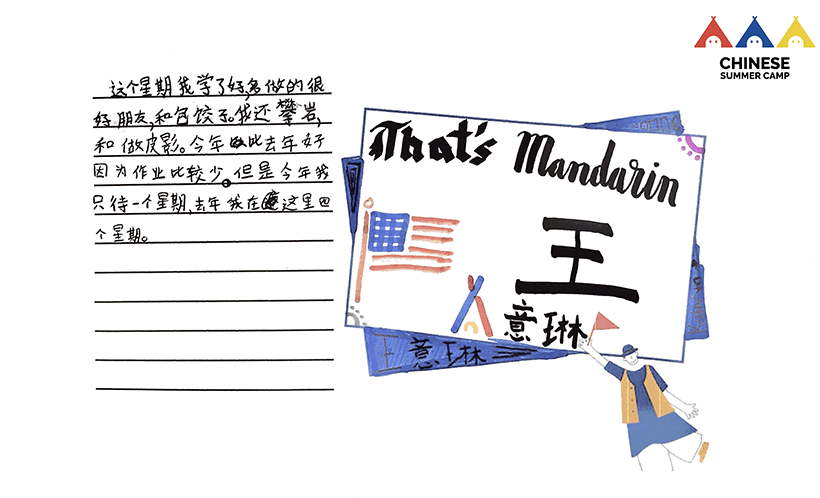 CHINESE
SUMMER CAMP
这个星期我学了好多做的很
好朋友,和包饺子。我还攀岩,
和做皮影。今年比去年好
因为作业比较少。但是今年我
只待一个星期,去年我在这里四
个星期。
That's Mandarin
王
意琳
王意琳